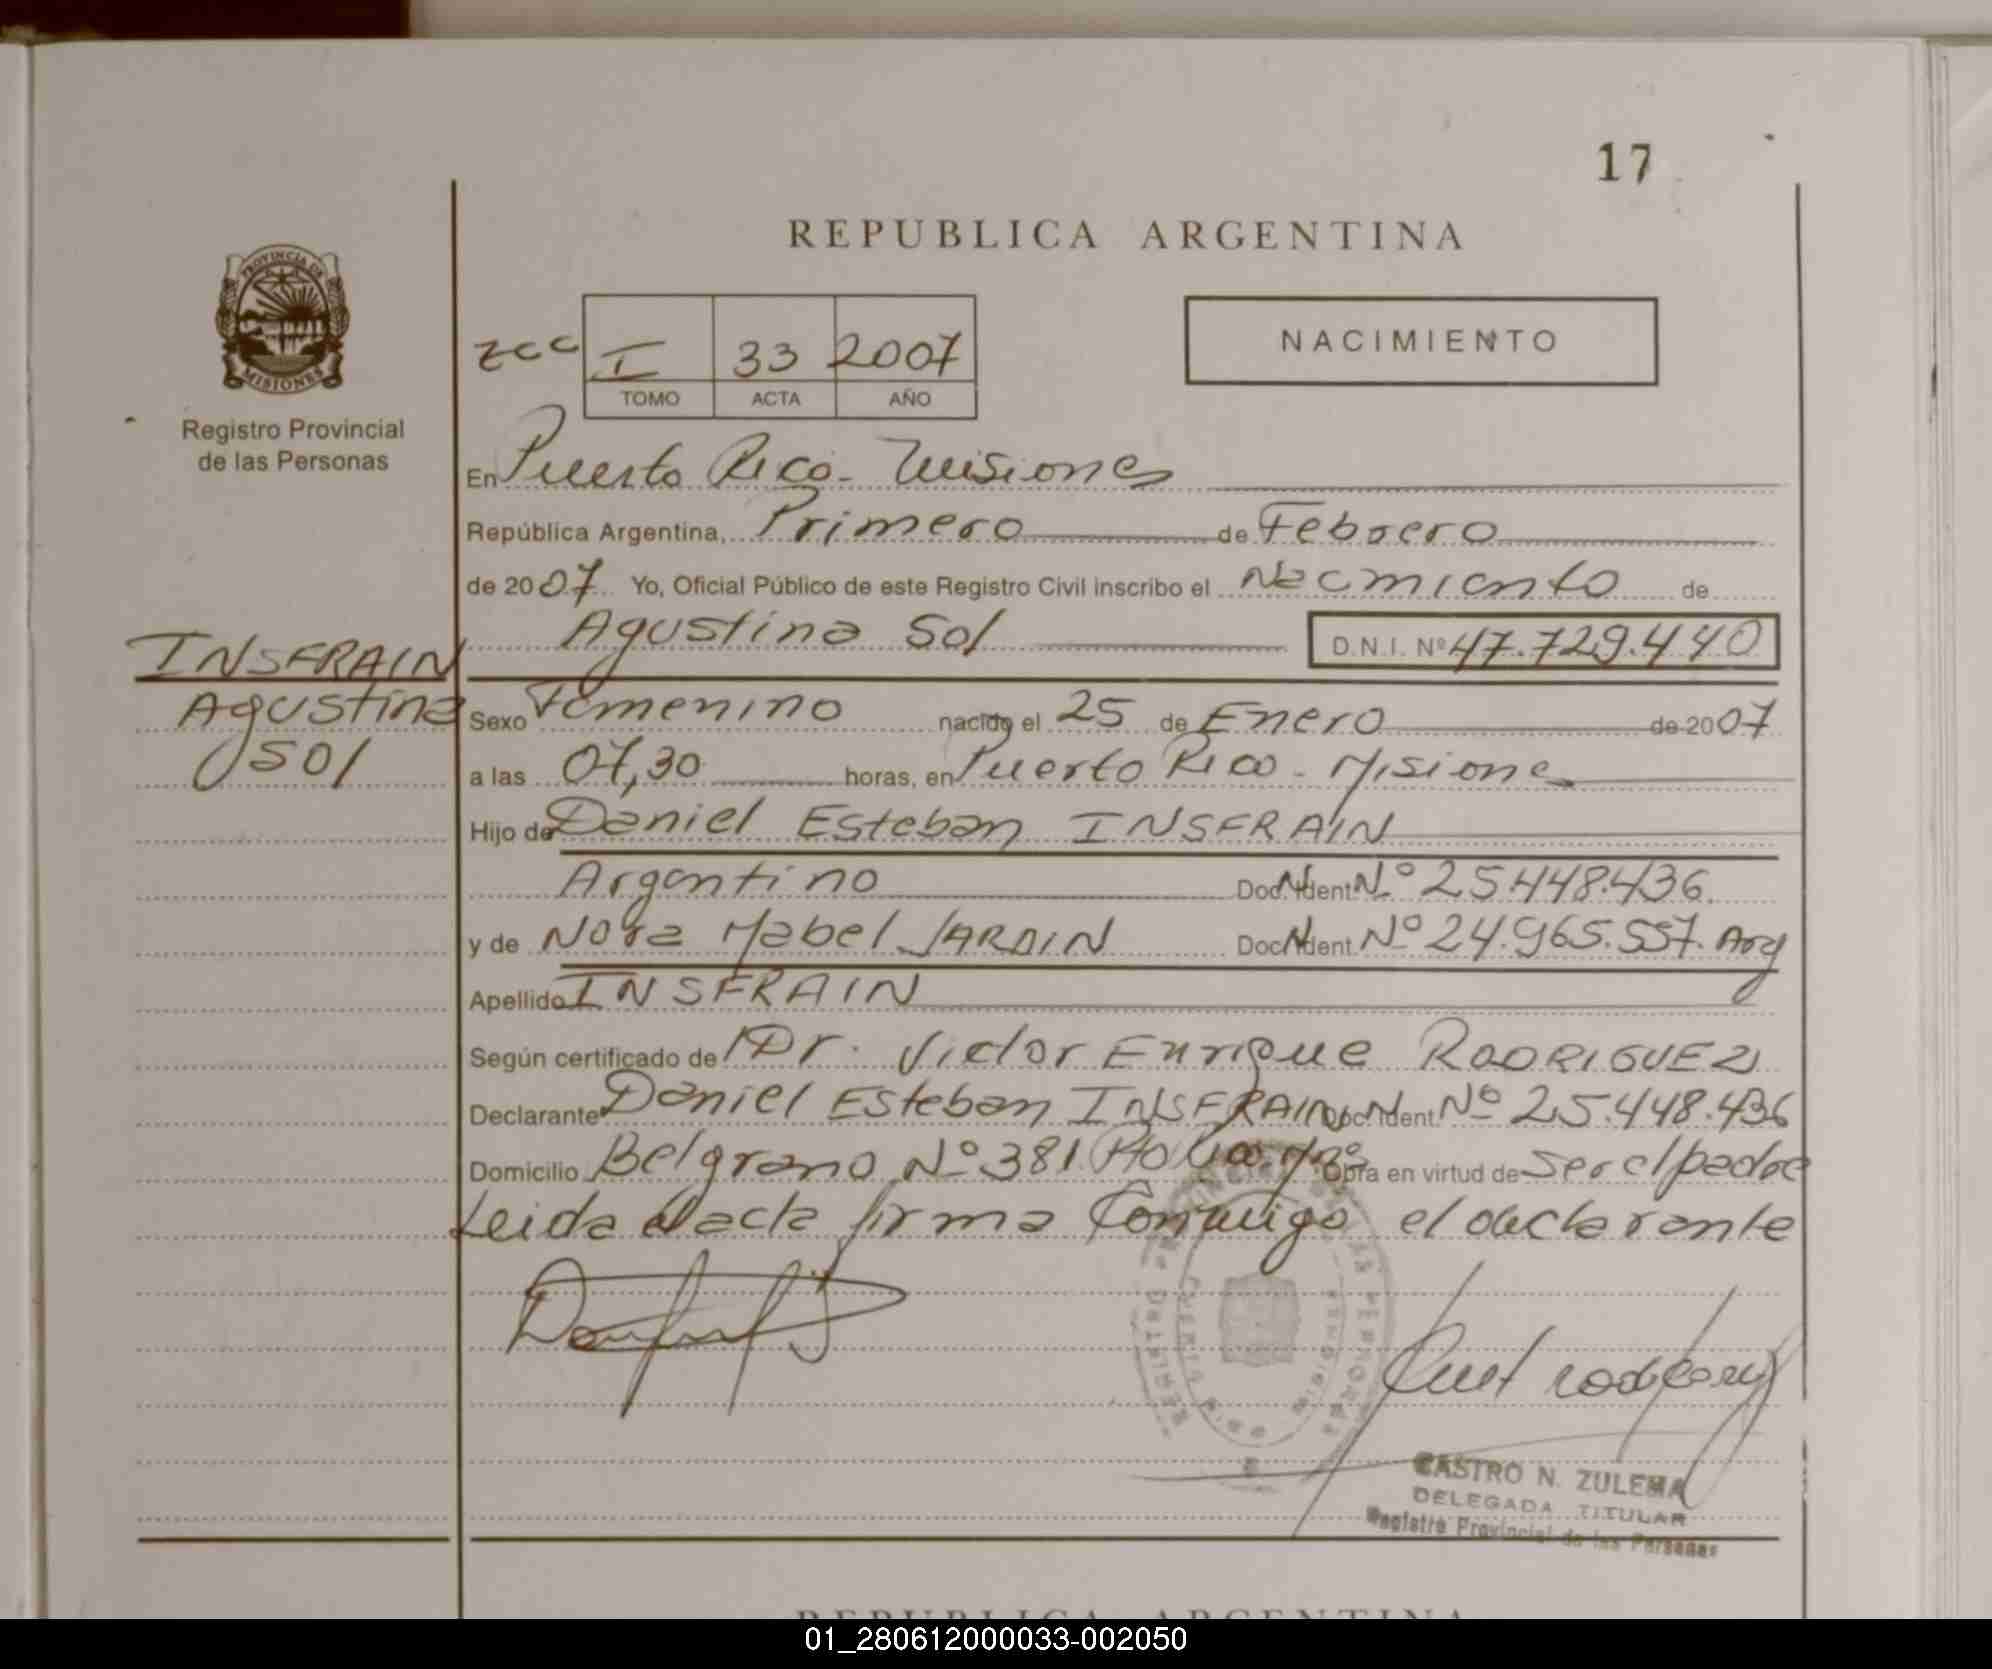 17
REPUBLICA ARGENTINA
PROVINCIA DE
MISIONES
Registro Provincial
de las Personas
zcc I 33 2007
TOMO ACTA AÑO
NACIMIENTO
En Puerto Rico - Misiones
República Argentina, Primero de Febrero
de 2007 Yo, Oficial Público de este Registro Civil inscribo el Nacimiento de
Agustina Sol D.N.I. Nº 47.729.440
INSFRAIN
Agustina
Sol
Sexo Femenino nacido el 25 de Enero de 2007
a las 07,30 horas, en Puerto Rico - Misiones
Hijo de Daniel Esteban INSFRAIN
Argentino Doc. Ident. Nº 25.448.436.
y de Nora Mabel JARDIN Doc. Ident. Nº 24.965.557. Arg
Apellido INSFRAIN
Según certificado de Dr. Victor Enrique RODRIGUEZ
Declarante Daniel Esteban INSFRAIN Doc. Ident. Nº 25.448.436
Domicilio Belgrano Nº 381 Pto Rico Mnes Obra en virtud de ser el padre
Leida el acta firma Conmigo el declarante
CASTRO N. ZULEMA
DELEGADA TITULAR
Registro Provincial de las Personas
REPUBLICA ARGENTINA
01_280612000033-002050